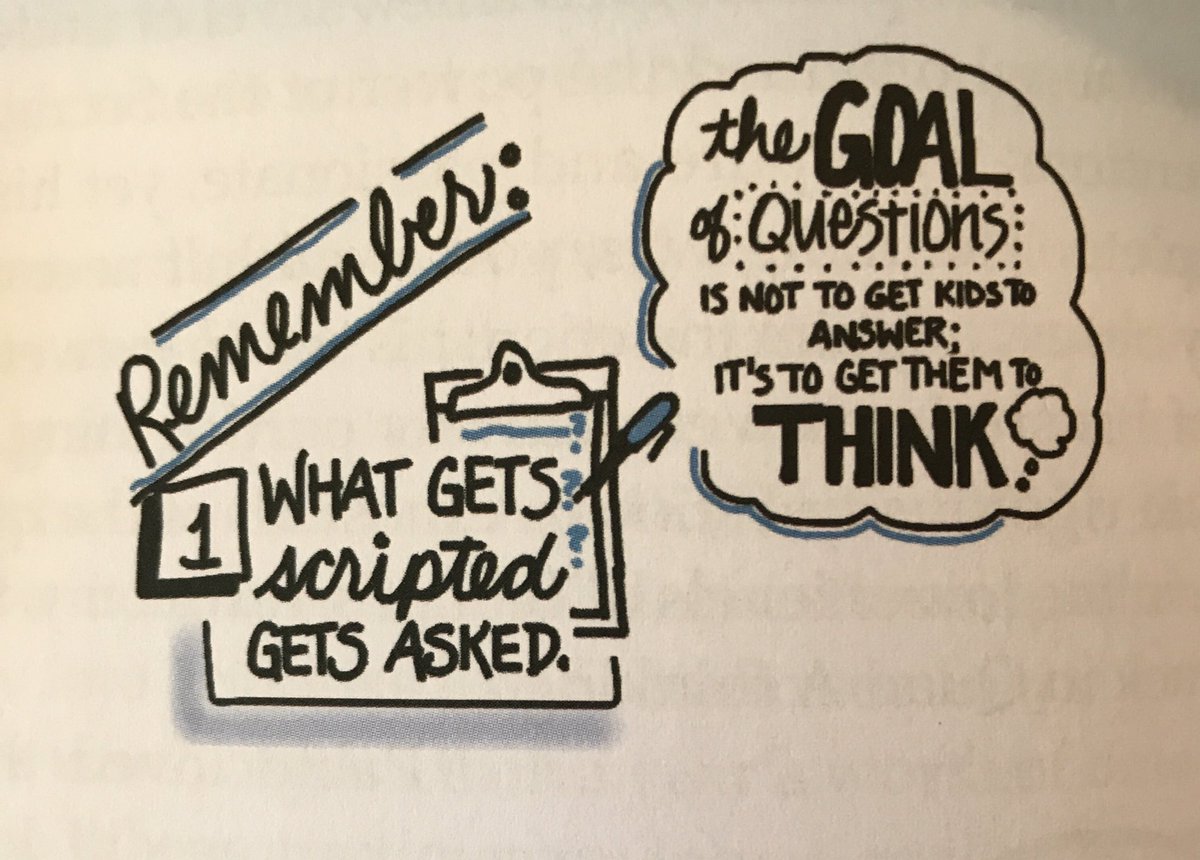 Remember:
1
WHAT GETS
scripted
GETS ASKED.
? ? ?
the GOAL
of Questions
IS NOT TO GET KIDS TO
ANSWER;
IT'S TO GET THEM TO
THINK